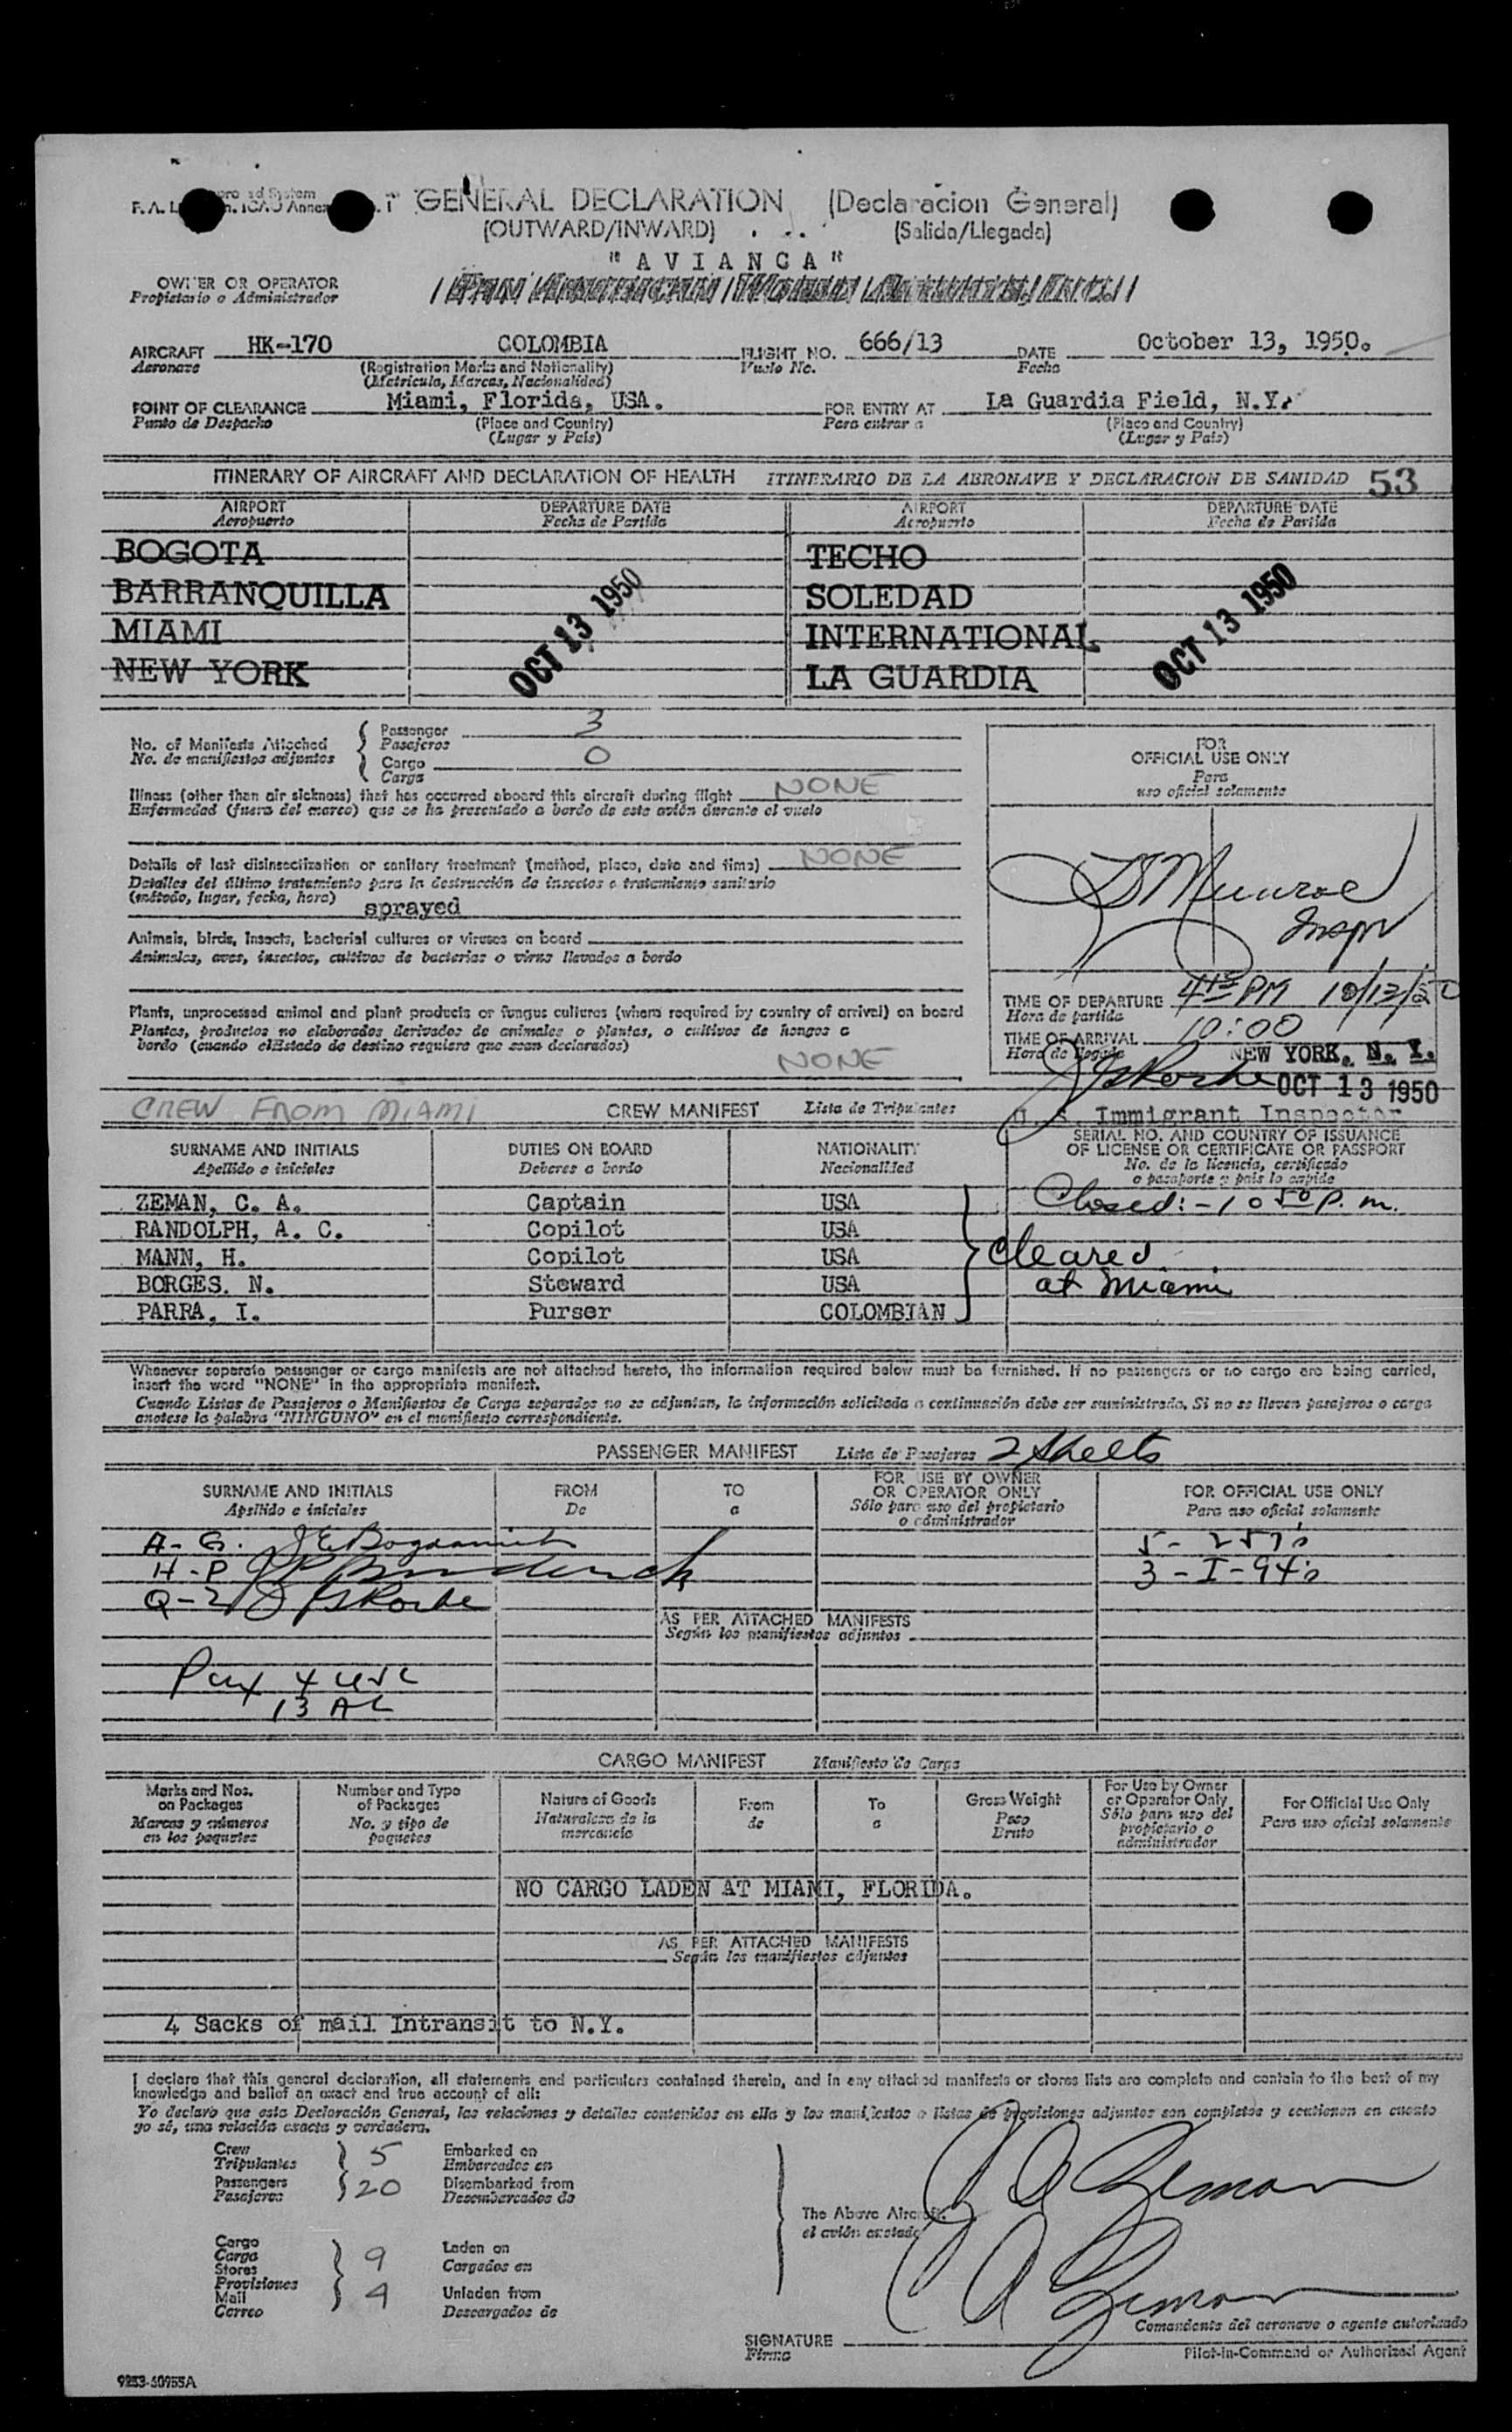 GENERAL DECLARATION (Declaracion General)
(OUTWARD/INWARD) (Salida/Llegada)
"AVIANCA"
OWNER OR OPERATOR
Propietario o Administrador
AIRCRAFT HK-170 COLOMBIA FLIGHT NO. 666/13 DATE October 13, 1950.
Aeronave (Registration Marks and Nationality) Vuelo No. Fecha
(Matricula, Marcas, Nacionalidad)
POINT OF CLEARANCE Miami, Florida, USA. FOR ENTRY AT La Guardia Field, N.Y.
Punto de Despacho (Place and Country) Para entrar a (Place and Country)
(Lugar y Pais) (Lugar y Pais)
ITINERARY OF AIRCRAFT AND DECLARATION OF HEALTH ITINERARIO DE LA AERONAVE Y DECLARACION DE SANIDAD 53
AIRPORT DEPARTURE DATE AIRPORT DEPARTURE DATE
Aeropuerto Fecha de Partida Aeropuerto Fecha de Partida
BOGOTA TECHO
BARRANQUILLA SOLEDAD
MIAMI OCT 13 1950 INTERNATIONAL OCT 13 1950
NEW YORK LA GUARDIA
No. of Manifests Attached Passenger 3
No. de manifiestos adjuntos Pasajeros
Cargo 0
Carga
FOR
OFFICIAL USE ONLY
Para
uso oficial solamente
Illness (other than air sickness) that has occurred aboard this aircraft during flight NONE
Enfermedad (fuera del mareo) que se ha presentado a bordo de este avión durante el vuelo
Details of last disinsectization or sanitary treatment (method, place, date and time) NONE
Detalles del último tratamiento para la destrucción de insectos o tratamiento sanitario
(método, lugar, fecha, hora) sprayed
Munroe
Inspr
Animals, birds, insects, bacterial cultures or viruses on board
Animales, aves, insectos, cultivos de bacterias o virus llevados a bordo
Plants, unprocessed animal and plant products or fungus cultures (where required by country of arrival) on board
Plantas, productos no elaborados derivados de animales o plantas, o cultivos de hongos a
bordo (cuando el Estado de destino requiera que sean declarados)
NONE
TIME OF DEPARTURE 4 15 PM 10/13/50
Hora de partida
TIME OF ARRIVAL 10:00
Hora de llegada NEW YORK, N. Y.
OCT 13 1950
U. S. Immigrant Inspector
CREW FROM MIAMI CREW MANIFEST Lista de Tripulantes
SURNAME AND INITIALS DUTIES ON BOARD NATIONALITY SERIAL NO. AND COUNTRY OF ISSUANCE
Apellido e iniciales Deberes a bordo Nacionalidad OF LICENSE OR CERTIFICATE OR PASSPORT
No. de la licencia, certificado
o pasaporte y pais lo expide
ZEMAN, C. A. Captain USA Closed:- 10 50 P. m.
RANDOLPH, A. C. Copilot USA
MANN, H. Copilot USA Cleared
BORGES. N. Steward USA at Miami
PARRA, I. Purser COLOMBIAN
Whenever separate passenger or cargo manifests are not attached hereto, the information required below must be furnished. If no passengers or no cargo are being carried,
insert the word "NONE" in the appropriate manifest.
Cuando Listas de Pasajeros o Manifiestos de Carga separados no se adjuntan, la información solicitada a continuación debe ser suministrada. Si no se lleven pasajeros o carga
anotese la palabra "NINGUNO" en el manifiesto correspondiente.
PASSENGER MANIFEST Lista de Pasajeros 2 Sheets
SURNAME AND INITIALS FROM TO FOR USE BY OWNER FOR OFFICIAL USE ONLY
Apellido e iniciales De a OR OPERATOR ONLY Para uso oficial solamente
Sólo para uso del propietario
o administrador
A-G. 5 - 257's
H-P 3 - I-94's
Q-Z
AS PER ATTACHED MANIFESTS
Según los manifiestos adjuntos
Pax 4 USC
13 AL
CARGO MANIFEST Manifiesto de Carga
Marks and Nos. Number and Type Nature of Goods From To Gross Weight For Use by Owner For Official Use Only
on Packages of Packages Naturaleza de la de a Peso or Operator Only Para uso oficial solamente
Marcas y números No. y tipo de mercancía Bruto Sólo para uso del
en los paquetes paquetes propietario o
administrador
NO CARGO LADEN AT MIAMI, FLORIDA.
AS PER ATTACHED MANIFESTS
Según los manifiestos adjuntos
4 Sacks of mail Intransit to N.Y.
I declare that this general declaration, all statements and particulars contained therein, and in any attached manifests or stores lists are complete and contain to the best of my
knowledge and belief an exact and true account of all:
Yo declaro que esta Declaración General, las relaciones y detalles contenidos en ella y los manifiestos o listas de provisiones adjuntos son completos y contienen en cuanto
yo sé, una relación exacta y verdadera.
Crew 5 Embarked on
Tripulantes Embarcados en
Passengers 20 Disembarked from
Pasajeros Desembarcados de
The Above Aircraft.
el avión anotado
C A Zeman
Cargo
Carga 9 Laden on
Stores Cargados en
Provisiones
Mail 4 Unladen from
Correo Descargados de
C A Zeman
Comandante del aeronave o agente autorizado
SIGNATURE
Firma Pilot-in-Command or Authorized Agent
9253-50955A